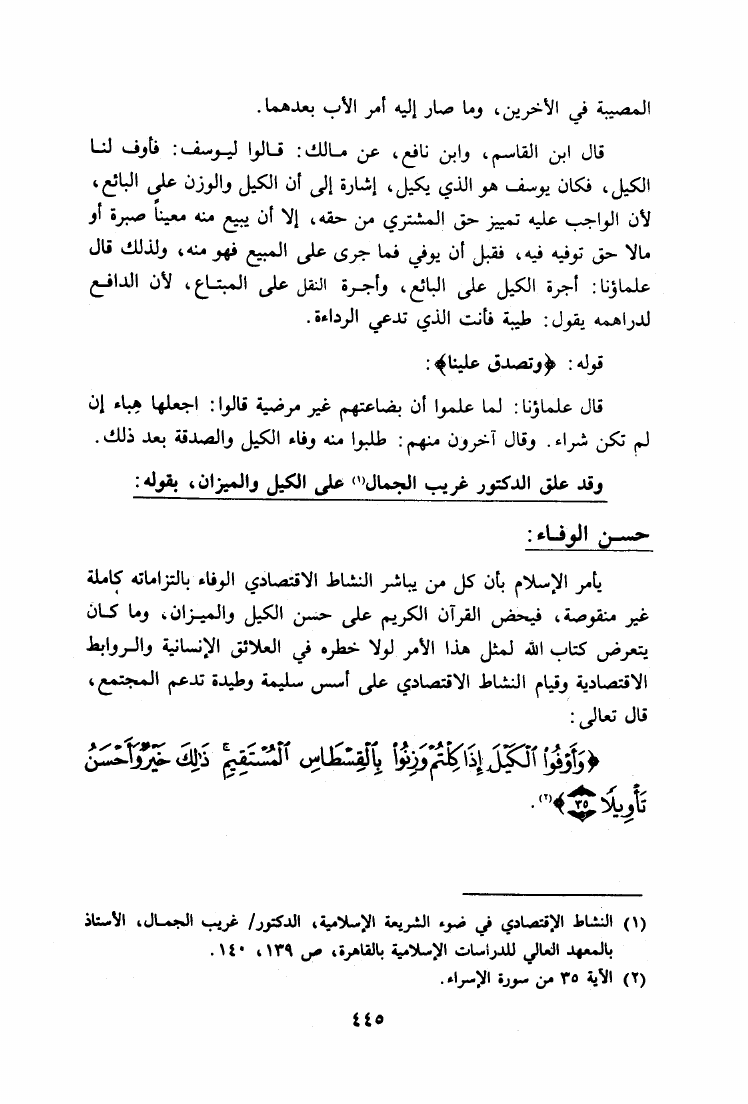 المصيبة في الأخرين، وما صار إليه أمر الأب بعدهما.
قال ابن القاسم، وابن نافع، عن مـالك: قـالوا ليـوسف: فأوف لنـا
الكيل، فكان يوسف هو الذي يكيل، إشارة إلى أن الكيل والوزن على البائع،
لأن الواجب عليه تمييز حق المشتري من حقه، إلا أن يبيع منه معيناً صبرة أو
مالا حق توفيه فيه، فقبل أن يوفي فما جرى على المبيع فهو منه، ولذلك قال
علماؤنا: أجرة الكيل على البائع، وأجـرة النقل على المبتـاع، لأن الدافـع
لدراهمه يقول: طيبة فأنت الذي تدعي الرداءة.
قوله: ﴿وتصدق علينا﴾:
قال علماؤنا: لما علموا أن بضاعتهم غير مرضية قالوا: اجعلها هِباء إن
لم تكن شراء. وقال آخرون منهم: طلبوا منه وفاء الكيل والصدقة بعد ذلك.
وقد علق الدكتور غريب الجمال(١) على الكيل والميزان، بقوله:
حســن الوفـاء:
يأمر الإسلام بأن كل من يباشر النشاط الاقتصادي الوفاء بالتزاماته كاملة
غير منقوصة، فيحض القرآن الكريم على حسن الكيل والميـزان، وما كـان
يتعرض كتاب الله لمثل هذا الأمر لولا خطره في العلائق الإنسانية والـروابط
الاقتصادية وقيام النشاط الاقتصادي على أسس سليمة وطيدة تدعم المجتمع،
قال تعالى:
﴿وَأَوْفُوا۟ ٱلْكَيْلَ إِذَا كِلْتُمْ وَزِنُوا۟ بِٱلْقِسْطَاسِ ٱلْمُسْتَقِيمِ ۚ ذَٰلِكَ خَيْرٌ وَأَحْسَنُ
تَأْوِيلًا ٣٥﴾(٢).
(١) النشاط الإقتصادي في ضوء الشريعة الإسلامية، الدكتور/ غريب الجمـال، الأستاذ
بالمعهد العالي للدراسات الإسلامية بالقاهرة، ص ١٣٩، ١٤٠.
(٢) الآية ٣٥ من سورة الإسراء.
٤٤٥